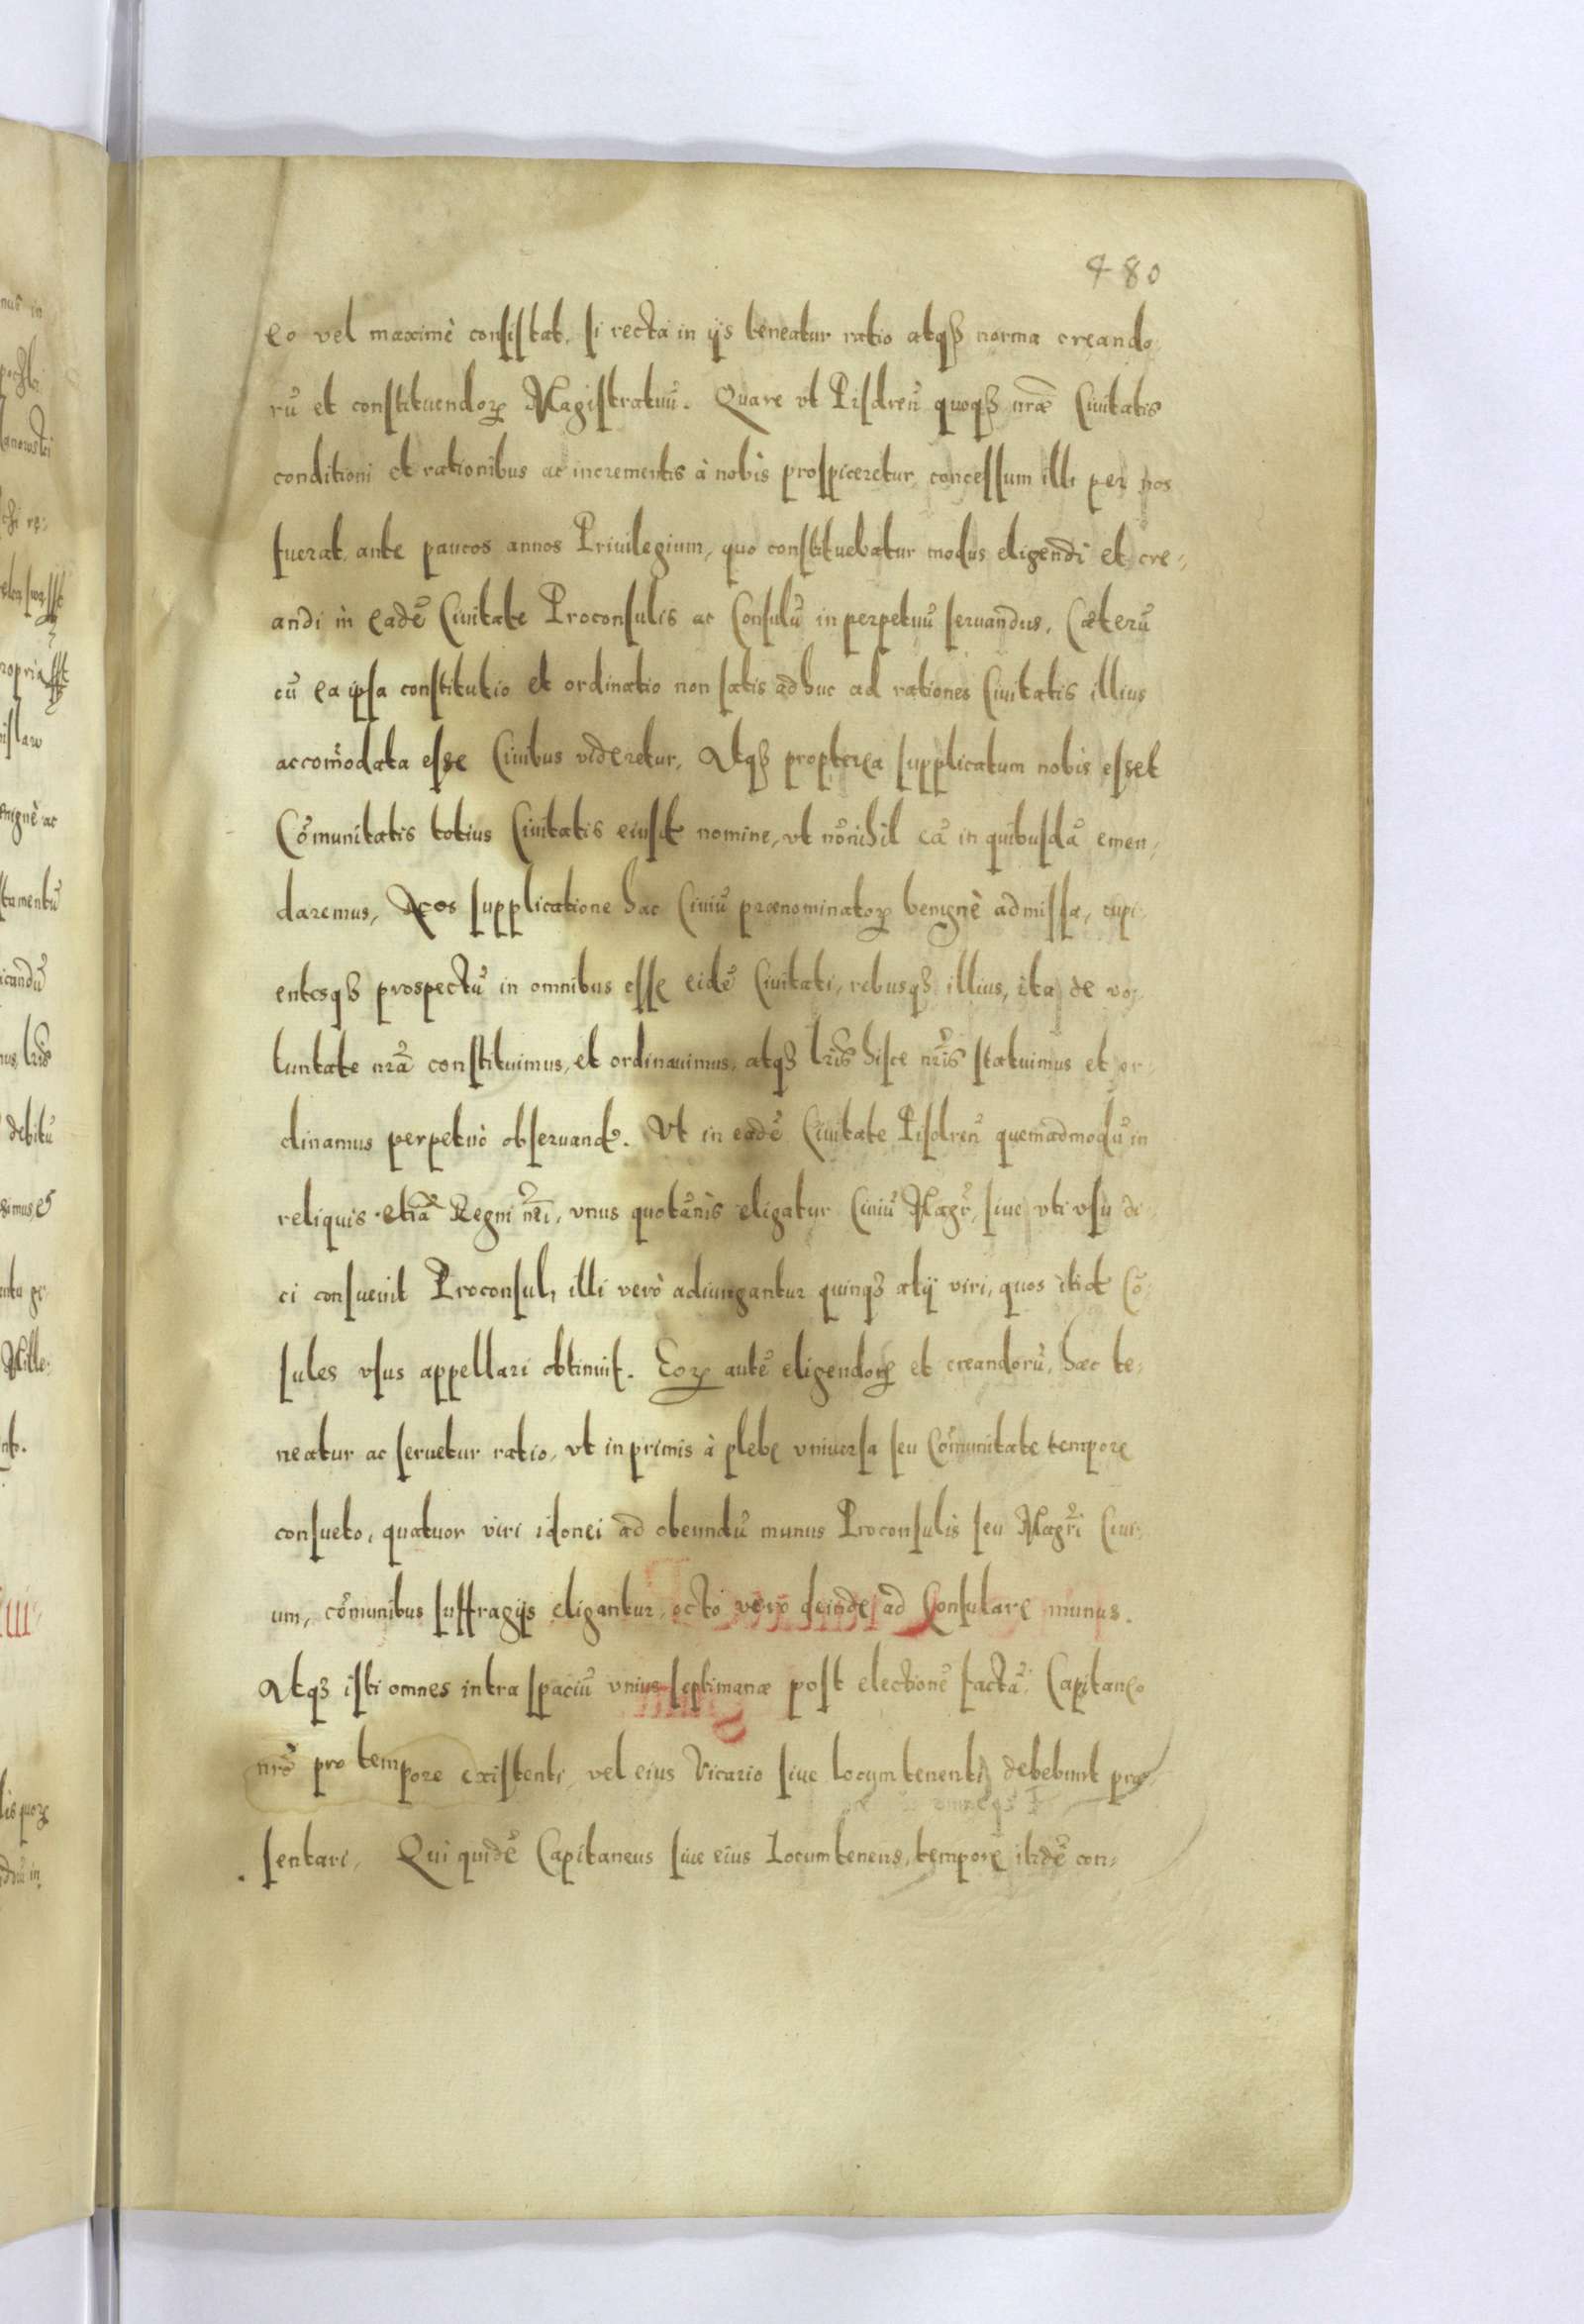 480
eo vel maximè consistat, si recta in ijs teneatur ratio atq3 norma creando
rũ et constituendoꝝ Magistratuũ. Quare vt Pisdreñ quoq3 nr̃æ Ciuitatis
conditioni et rationibus ac incrementis à nobis prospiceretur, concessum illi per nos
fuerat ante paucos annos Priuilegium, quo constituebatur modus eligendi et cre-
andi in eadẽ Ciuitate Proconsulis ac Consulũ in perpetuũ seruandus. Cæterũ
cũ ea ipsa constitutio et ordinatio non satis adhuc ad rationes Ciuitatis illius
accom̃odata esse Ciuibus videretur. Atq3 propterea supplicatum nobis esset
Cõmunitatis totius Ciuitatis eiusd nomine, vt nõnihil eã in quibusdã emen-
daremus, Nos supplicatione hac Ciuiũ prænominatoꝝ benignè admissa, cupi-
entesq3 prospectũ in omnibus esse eidẽ Ciuitati, rebusq3 illius, ita de vo-
luntate nr̃a constituimus, et ordinauimus, atq3 lr̃is hisce nr̃is statuimus et or-
dinamus perpetuò obseruand. Vt in eadẽ Ciuitate Pisdreñ quemadmodũ in
reliquis etiã Regni nr̃i, vnus quotãnis eligatur Ciuiũ Magr̃, siue vti vsu di-
ci consueuit Proconsul, illi verò adiungantur quinq3 alij viri, quos itid Cõ-
sules vsus appellari obtinuit. Eoꝝ autẽ eligendoꝝ et creandorũ, hæc te-
neatur ac seruetur ratio, vt inprimis à plebe vniuersa seu Cõmunitate tempore
consueto, quatuor viri idonei ad obeundũ munus Proconsulis seu Magr̃i Ciui-
um, cõmunibus suffragijs eligantur, octo vero deinde ad Consulare munus.
Atq3 isti omnes intra spaciũ vnius septimanæ post electionẽ factã, Capitaneo
nr̃o pro tempore existenti, vel eius Vicario siue Locumtenenti debebunt præ-
sentari, Qui quidẽ Capitaneus siue eius Locumtenens, tempore itidẽ con-